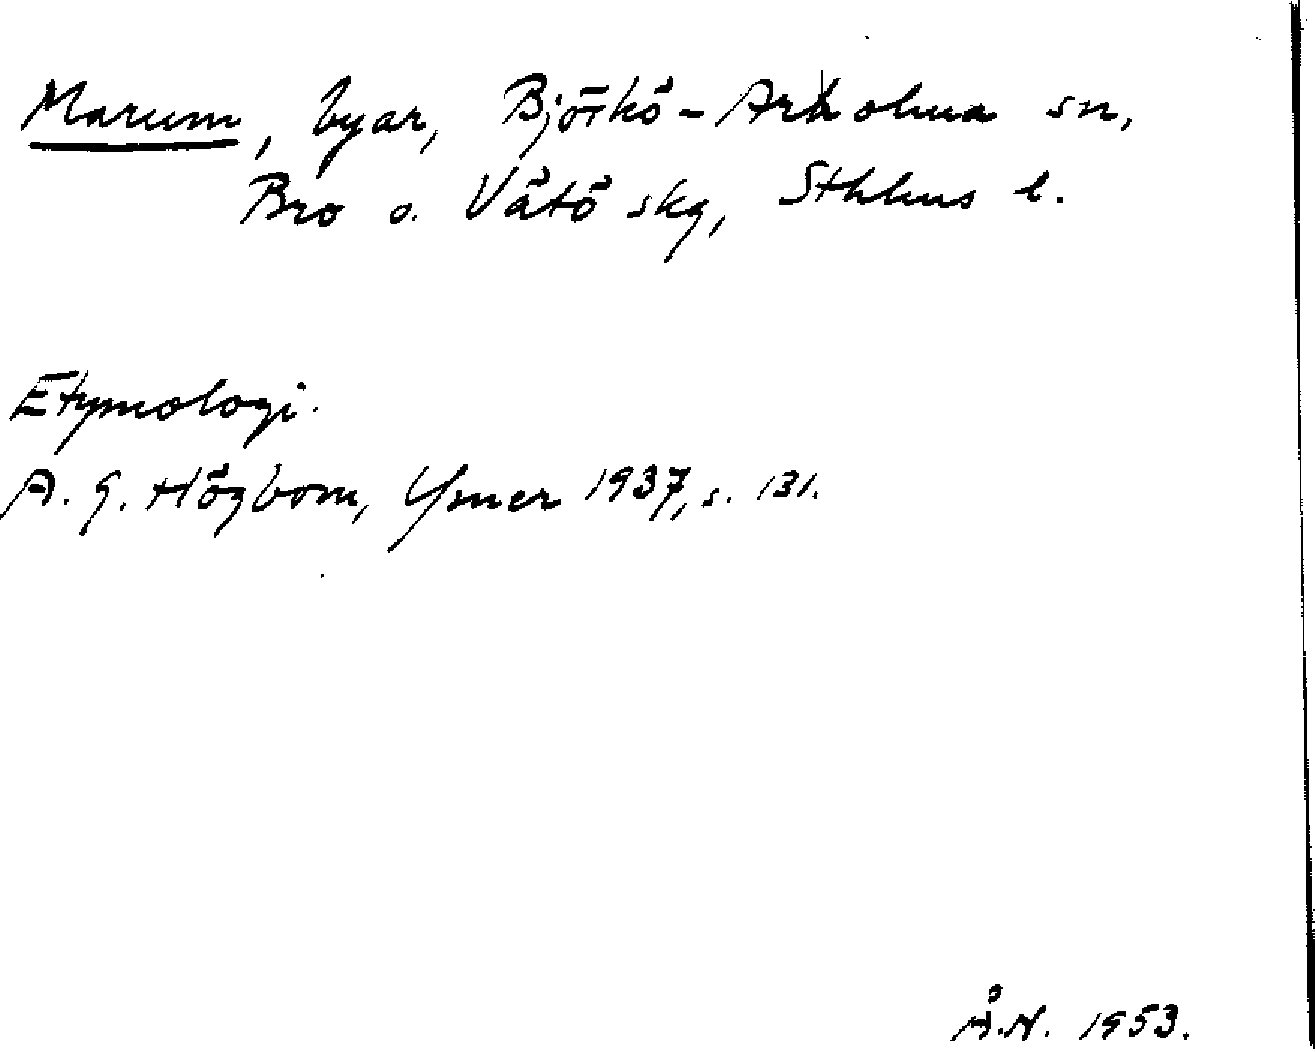 Marum, byar, Björkö-Arholma sn,
Bro o. Vätö skg, Sthlms l.
Etymologi.
A. G. Högbom, Ymer 1937, s. 131.
Å.N. 1953.